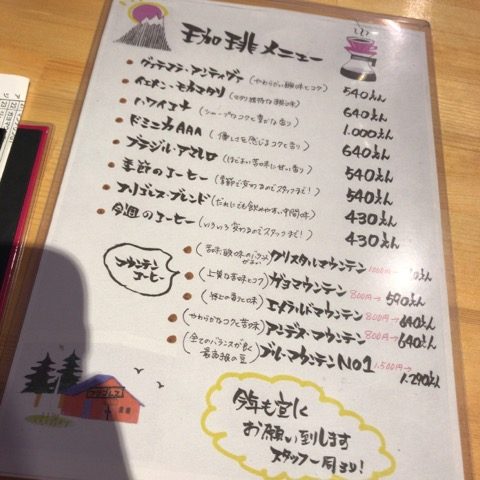 珈琲メニュー
グァテマラ・アンティグァ (やわらかい酸味とコク) 540えん
イエメン・モカマタリ 640えん
ハワイコナ 1.000えん
ドミニカAAA (優しさを感じるコクと香り) 640えん
ブラジル・アマレロ (ほどよい苦味に甘い香り) 540えん
季節のコーヒー (季節で変わるのでスタッフまで!) 540えん
ブレンド (だれにでも飲みやすい中間味) 430えん
今週のコーヒー (いろいろ変わるのでスタッフまで!) 430えん
マウンテンコーヒー
クリスタルマウンテン えん
(上質な苦味とコク) ガヨマウンテン 800円→590えん
(極上の香りと味) エメラルドマウンテン 800円→640えん
(やわらかなコクと苦味) アンデス・マウンテン 800円→640えん
(全てのバランスが良く最高級の豆) ブルーマウンテンNO1 1,500円→1.290えん
今年も宜しく
お願い致します
スタッフ一同より!